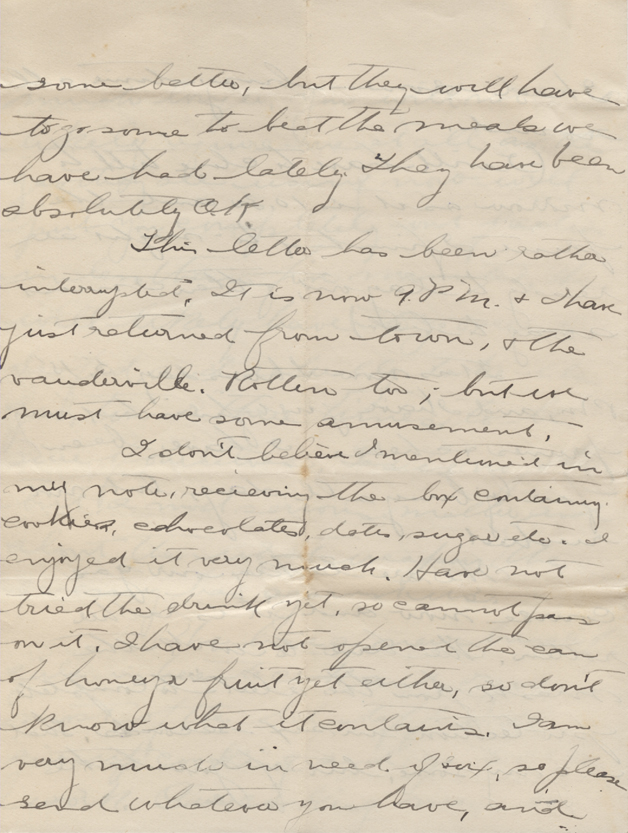 some better, but they will have
to go some to beat the meals we
have had lately. They have been
absolutely OK
This letter has been rather
interrupted. It is now 9. P.M. & I have
just returned from town, & the
vauderville. Rotten too; but we
must have some amusement.
I don't believe I mentioned in
my note, recieving the box containing
cookies, chocolates, dates, sugar etc. I
enjoyed it very much. Have not
tried the drink yet, so cannot pass
on it. I have not opened the can
of honey & fruit yet either, so don't
know what it contains. I am
very much in need of sox, so please
send whatever you have, and